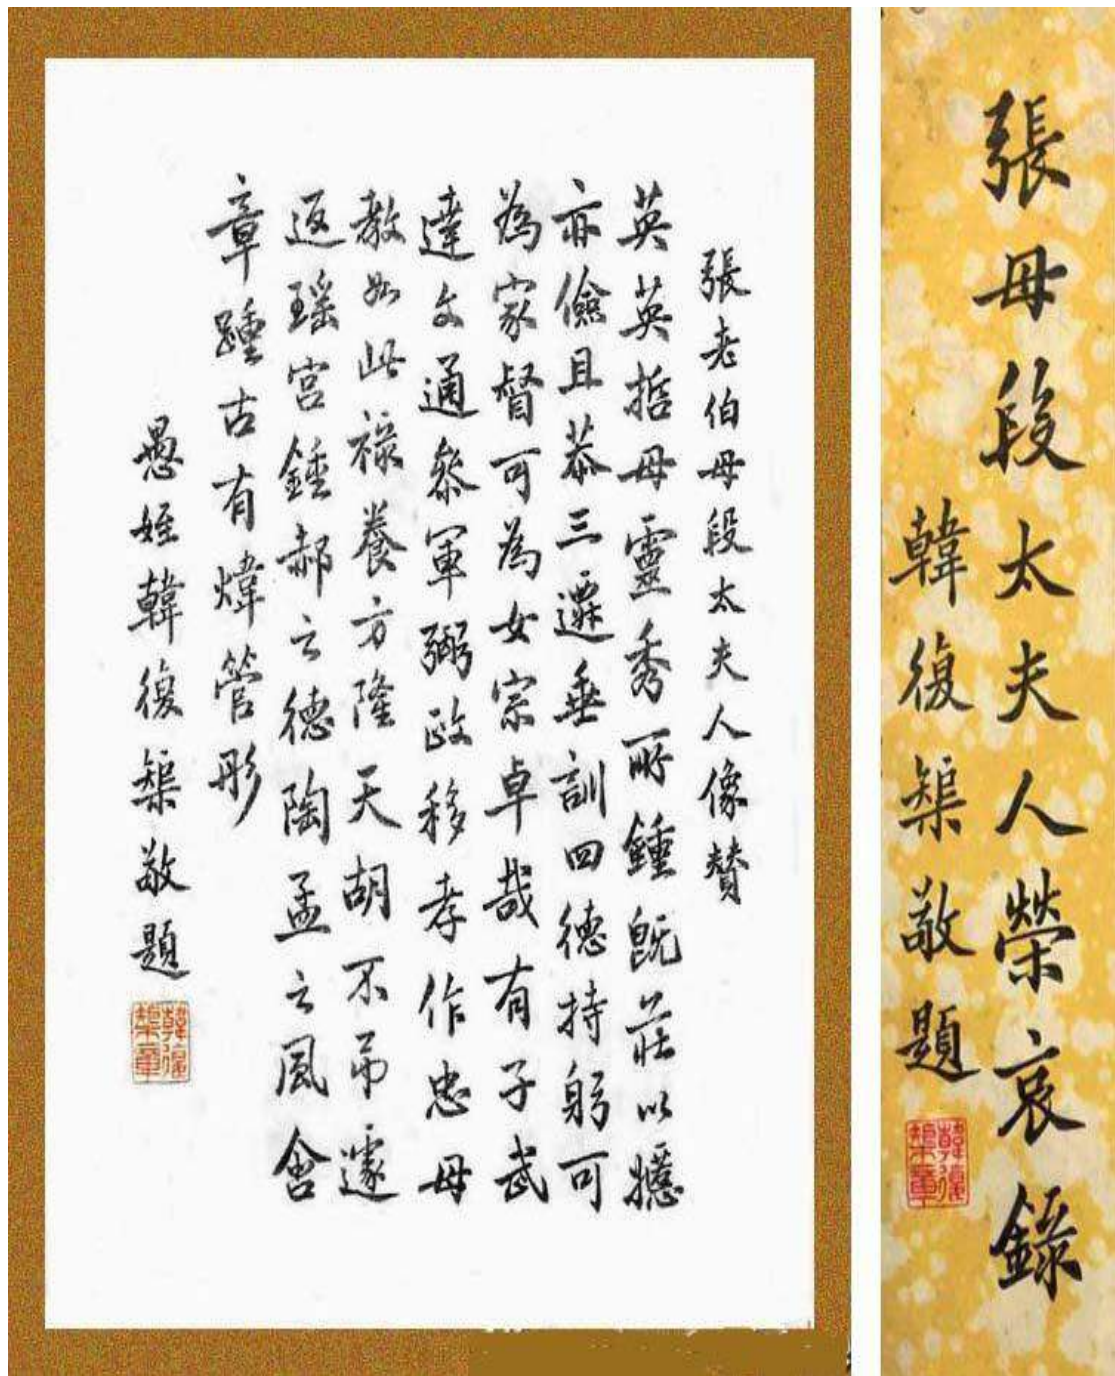 張母段太夫人榮哀錄
韓復榘敬題
韓復榘章
張老伯母段太夫人像贊
英英哲母靈秀所鍾既莊以
亦儉且恭三遷垂訓四德持躬可
為家督可為女宗卓哉有子武
達文通參軍弼政移孝作忠母
教如此祿養方隆天胡不弔遽
返瑤宮鍾郝之德陶孟之風含
章踵古有煒管彤
愚姪韓復榘敬題
韓復榘章